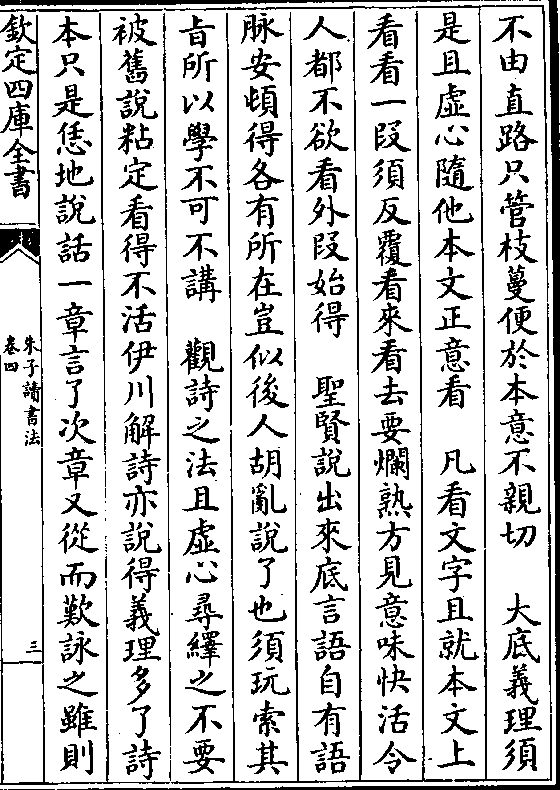 不由直路只管枝蔓便於本意不親切　大底義理須
是且虛心隨他本文正意看　凡看文字且就本文上
看看一段須反覆看來看去要爛熟方見意味快活令
人都不欲看外段始得　聖賢說出來底言語自有語
脉安頓得各有所在豈似後人胡亂說了也須玩索其
㫖所以學不可不講　觀詩之法且虛心尋繹之不要
被舊說粘定看得不活伊川解詩亦說得義理多了詩
本只是恁地說話一章言了次章又從而歎詠之雖則
欽定四庫全書
朱子讀書法
卷四
三